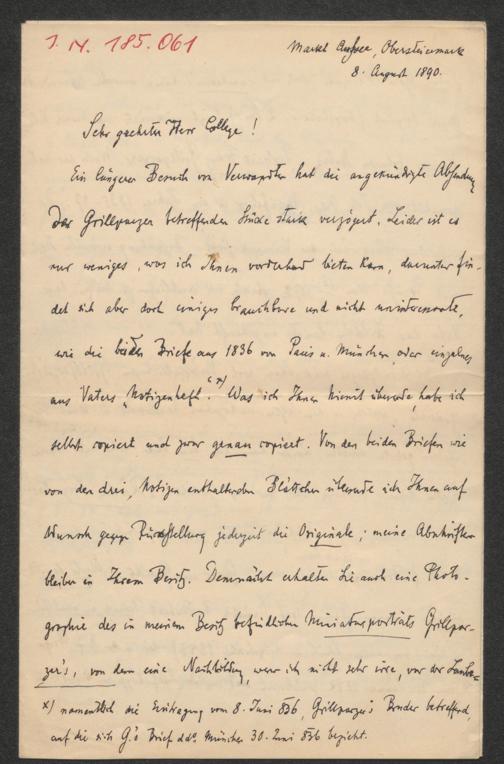 I. N. 185.061
Markt Aussee, Obersteiermark
8. August 1890.
Sehr geehrter Herr College!
Ein längerer Besuch von Verwandten hat die angekündigte Absendung
der Grillparzer betreffenden Stücke stark verzögert. Leider ist es
nur weniges, was ich Ihnen vorderhand bieten kann, darunter fin-
det sich aber doch einiges brauchbare und nicht uninteressante,
wie die beiden Briefe aus 1836 von Paris u. München, oder einzelnes
aus Vaters „Notizenheft“. x) Was ich Ihnen hiemit übersende, habe ich
selbst copiert und zwar genau copiert. Von den beiden Briefen wie
von den drei, Notizen enthaltenden Blättchen übersende ich Ihnen auf
Wunsch gegen Rückstellung jederzeit die Originale; meine Abschriften
bleiben in Ihrem Besitz. Demnächst erhalten Sie auch eine Photo-
graphie des in meinem Besitz befindlichen Miniaturporträts Grillpar-
zer's, von dem eine Nachbildung, wenn ich nicht sehr irre, vor der
x) namentlich die Eintragung vom 8. Juni 836, Grillparzer's Bruder betreffend,
auf die sich G.'s Brief ddo. München 30. Juni 836 bezieht.